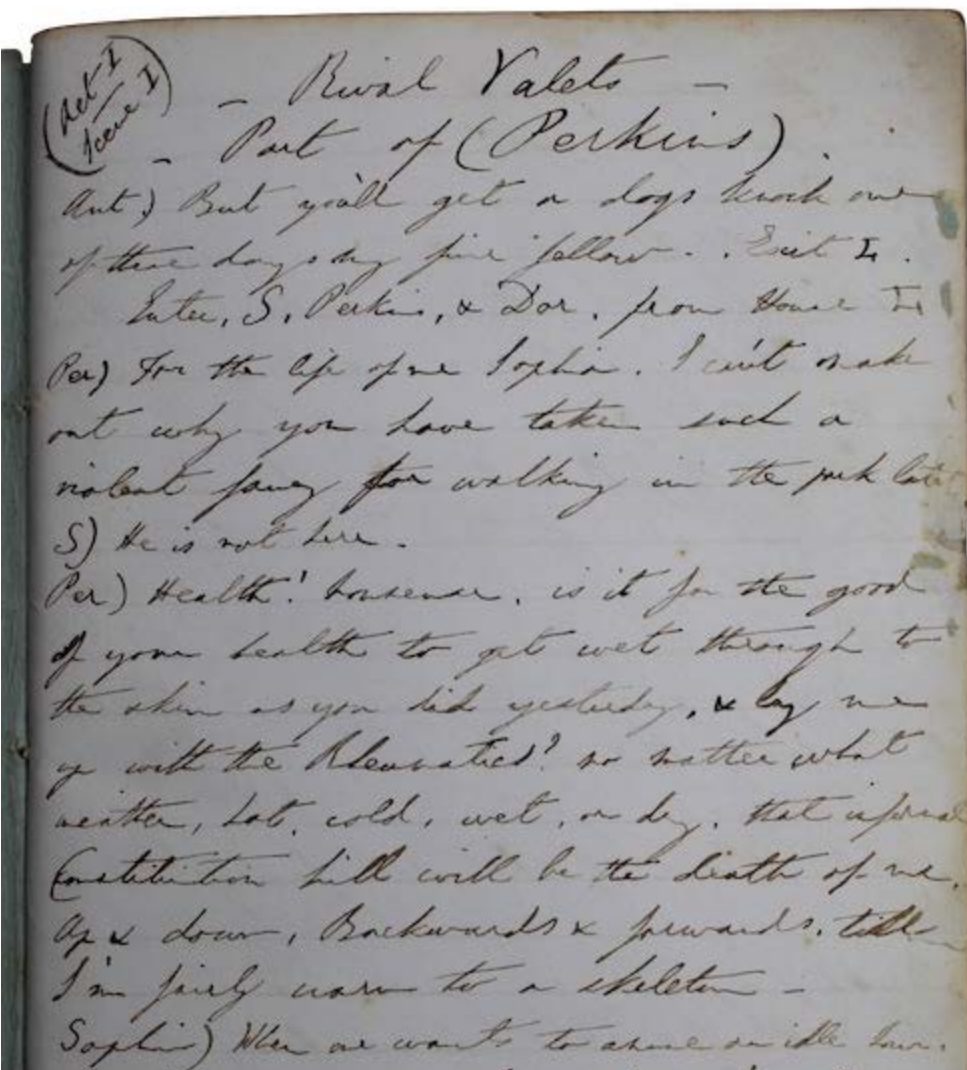 (Act I
Scene I)
- Rival Valets -
- Part of (Perkins)
Ant) But you'll get a dogs knock one
of these days my fine fellow - . Exit L.
Enter, S, Perkins, & Dor, from House L
Per) For the life of me Sophia. I can't make
out why you have taken such a
violent fancy for walking in the park late
S) He is not here.
Per) Health! nonsense, is it for the good
of your health to get wet through to
the skin as you did yesterday, & lay me
up with the Rheumatics? no matter what
weather, hot, cold, wet, or dry, that infernal
Constitution hill will be the death of me.
Up & down, Backwards & forwards, till
I'm fairly worn to a skeleton -
Sophia) When one wants to amuse an idle hour.